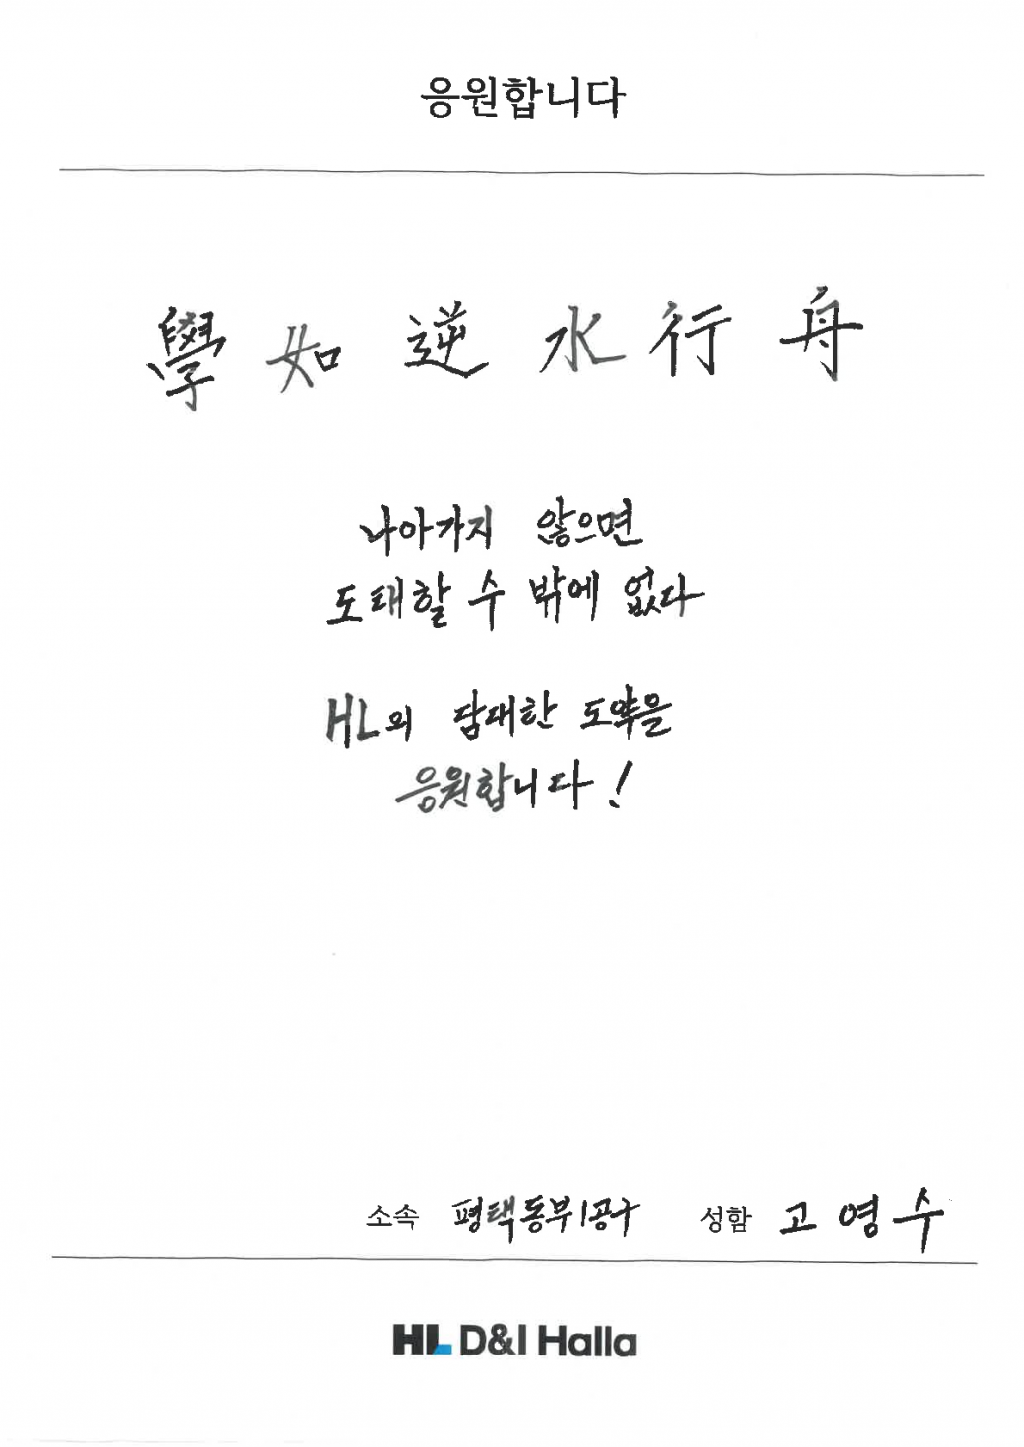 응원합니다
學如逆水行舟
나아가지 않으면
도태할 수 밖에 없다
HL의 담대한 도약을
응원합니다!
소속 평택동부1공구 성함 고영수
HL D&I Halla